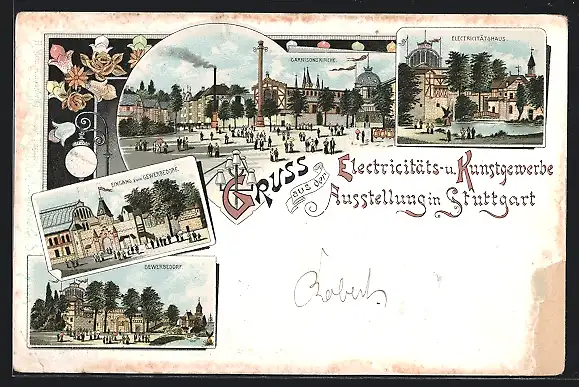 GARNISONSKIRCHE.
ELECTRICITÄTSHAUS.
EINGANG zum GEWERBEDORF.
GEWERBEDORF.
GRUSS aus der Electricitäts- u. Kunstgewerbe
Ausstellung in Stuttgart
Robert